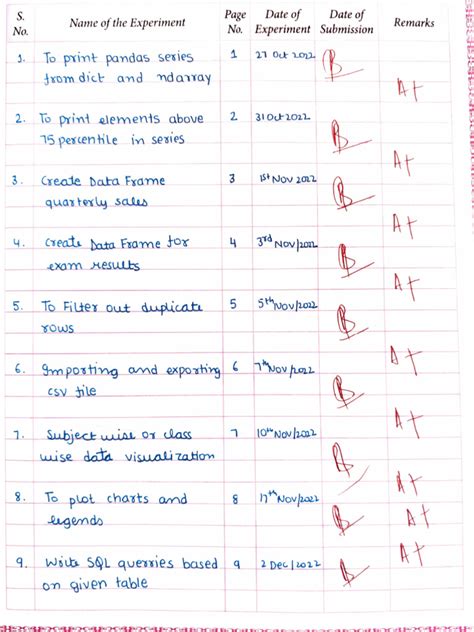 S. No. Name of the Experiment Page No. Date of Experiment Date of Submission Remarks
1. To print pandas series 1 27 Oct 2022
from dict and ndarray
A+
2. To print elements above 2 31 Oct 2022
75 percentile in series
A+
3. Create Data Frame 3 1st Nov 2022
quarterly sales
A+
4. Create Data Frame for 4 3rd Nov/2022
exam results
A+
5. To Filter out duplicate 5 5th Nov/2022
rows
A+
6. Importing and exporting 6 7th Nov/2022
csv file
A+
7. Subject wise or class 7 10th Nov/2022
wise data visualization
A+
8. To plot charts and 8 17th Nov/2022
legends
A+
9. Write SQL querries based 9 2 Dec/2022
on given table
A+